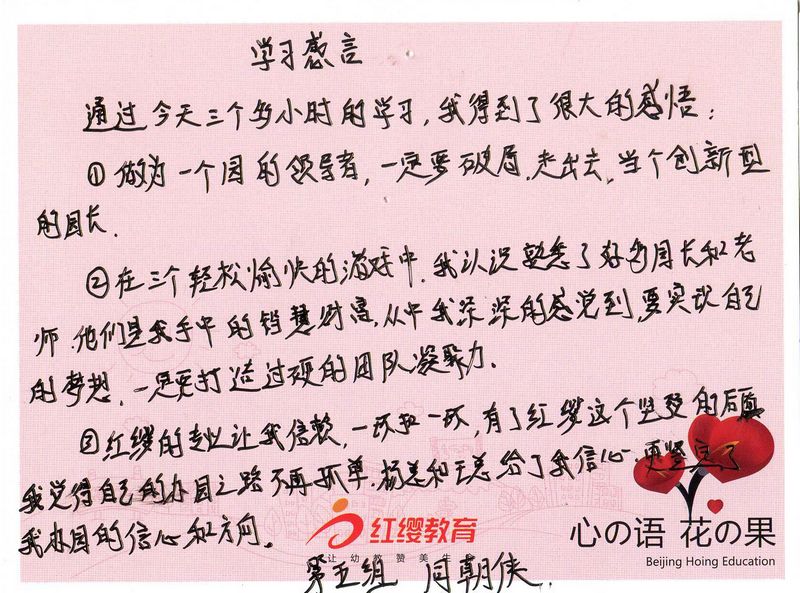 学习感言
通过今天三个多小时的学习,我得到了很大的感悟:
①做为一个园的领导者,一定要破局,走出去,当个创新型
的园长.
②在三个轻松愉快的游戏中,我认识熟悉了好多园长和老
师.他们是我手中的智慧财富,从中我深深的感觉到,要实现自己
的梦想,一定要打造过硬的团队凝聚力.
③红缨的专业让我信赖,一环扣一环,有了红缨这个坚硬的后盾
我觉得自己的办园之路不再孤单.杨总和王总给了我信心.更坚定了
我办园的信心和方向。
红缨教育
让幼教赞美生命
心の语 花の果
Beijing Hoing Education
第五组 闫朝侠.